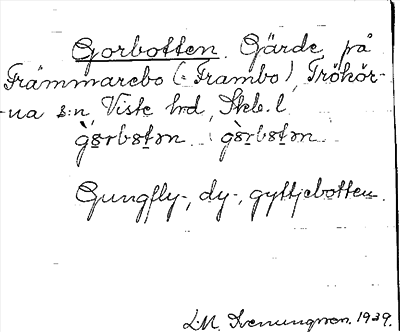 Gorbotten. Gärde på
Främmarebo (: Frambo), Frökör-
-na s:n, Viste hd, Skbl. l.
gɞrbɞtən gɞrbɞtən
Gungfly-, dy-, gyttjebotten.
L.M. Svenungsson. 1929.